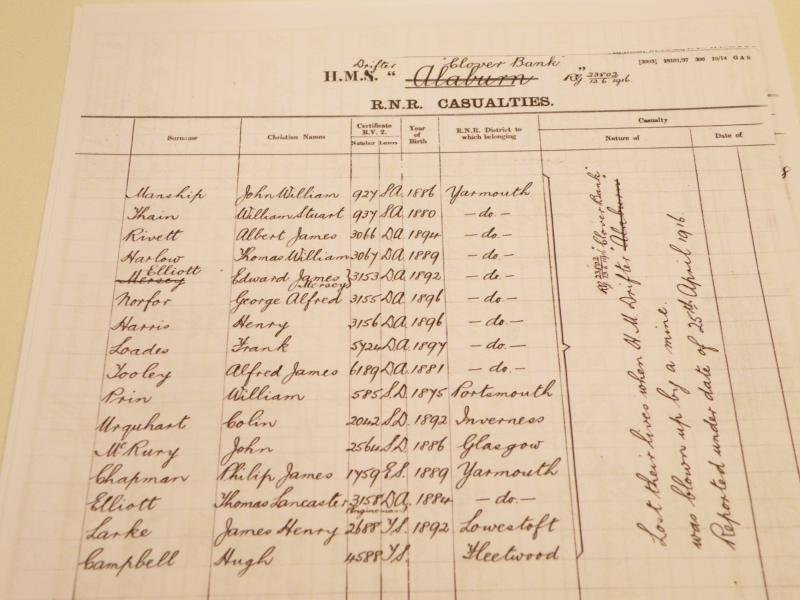 Drifter "Clover Bank"
H.M.S. " Alaburn " Rg 23802 13.6.1916. [3903] 28101/37 300 10/14 G & S
R.N.R. CASUALTIES.
Surname Christian Names Certificate R.V. 2. Number Letters Year of Birth R.N.R. District to which belonging Casualty Nature of Date of
Manship John William 927 S.A. 1886 Yarmouth
Thain William Stuart 937 S.A. 1880 -do.-
Rivett Albert James 3066 D.A. 1894 -do.-
Harlow Thomas William 3067 D.A. 1889 -do.-
Mersey Elliott Edward James Mersey 3153 D.A. 1892 -do.-
Norfor George Alfred 3155 D.A. 1896 -do.-
Harris Henry 3156 D.A. 1896 -do.-
Loades Frank 5724 D.A. 1897 -do.-
Tooley Alfred James 6189 D.A. 1881 -do.-
Prin William 585 S.D. 1875 Portsmouth
Urquhart Colin 2042 S.D. 1892 Inverness
McRury John 2564 S.D. 1886 Glasgow
Chapman Philip James 1759 E.S. 1889 Yarmouth
Elliott Thomas Lancaster (Engineman) 3158 D.A. 1884 -do.-
Larke James Henry 2688 T.S. 1892 Lowestoft
Campbell Hugh 4588 T.S. Fleetwood
"Clover Bank"
Lost their lives when H.M. Drifter Alaburn
was blown up by a mine.
Reported under date of 25th April 1916
8